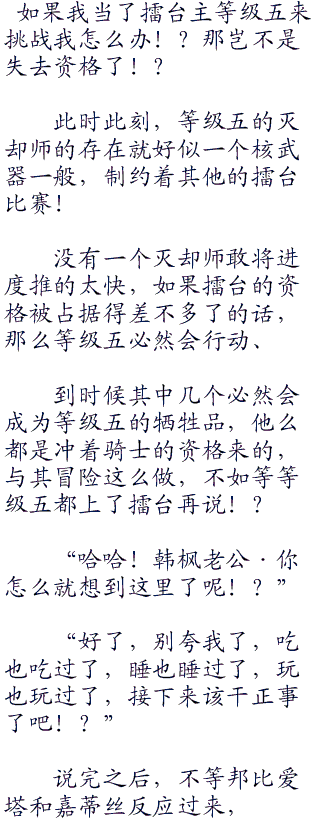 如果我当了擂台主等级五来
挑战我怎么办！？那岂不是
失去资格了！？
此时此刻，等级五的灭
却师的存在就好似一个核武
器一般，制约着其他的擂台
比赛！
没有一个灭却师敢将进
度推的太快，如果擂台的资
格被占据得差不多了的话，
那么等级五必然会行动、
到时候其中几个必然会
成为等级五的牺牲品，他么
都是冲着骑士的资格来的，
与其冒险这么做，不如等等
级五都上了擂台再说！？
“哈哈！韩枫老公·你
怎么就想到这里了呢！？”
“好了，别夸我了，吃
也吃过了，睡也睡过了，玩
也玩过了，接下来该干正事
了吧！？”
说完之后，不等邦比爱
塔和嘉蒂丝反应过来，